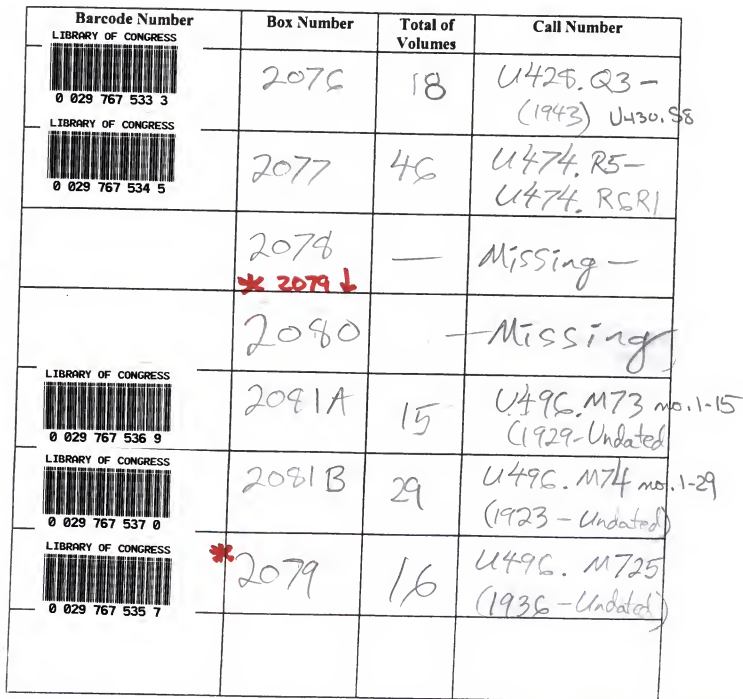 Barcode Number Box Number Total of Volumes Call Number
LIBRARY OF CONGRESS
0 029 767 533 3
2076 18 U428.Q3 -
(1943) U430.S8
LIBRARY OF CONGRESS
0 029 767 534 5
2077 46 U474.R5-
U474.R6R1
2078 — Missing —
* 2079 ↓
2080 — Missing
LIBRARY OF CONGRESS
0 029 767 536 9
2081A 15 U496.M73 no.1-15
(1929-Undated
LIBRARY OF CONGRESS
0 029 767 537 0
2081B 29 U496.M74 no.1-29
(1923 - Undated)
LIBRARY OF CONGRESS
0 029 767 535 7
* 2079 16 U496.M725
(1936 - Undated)